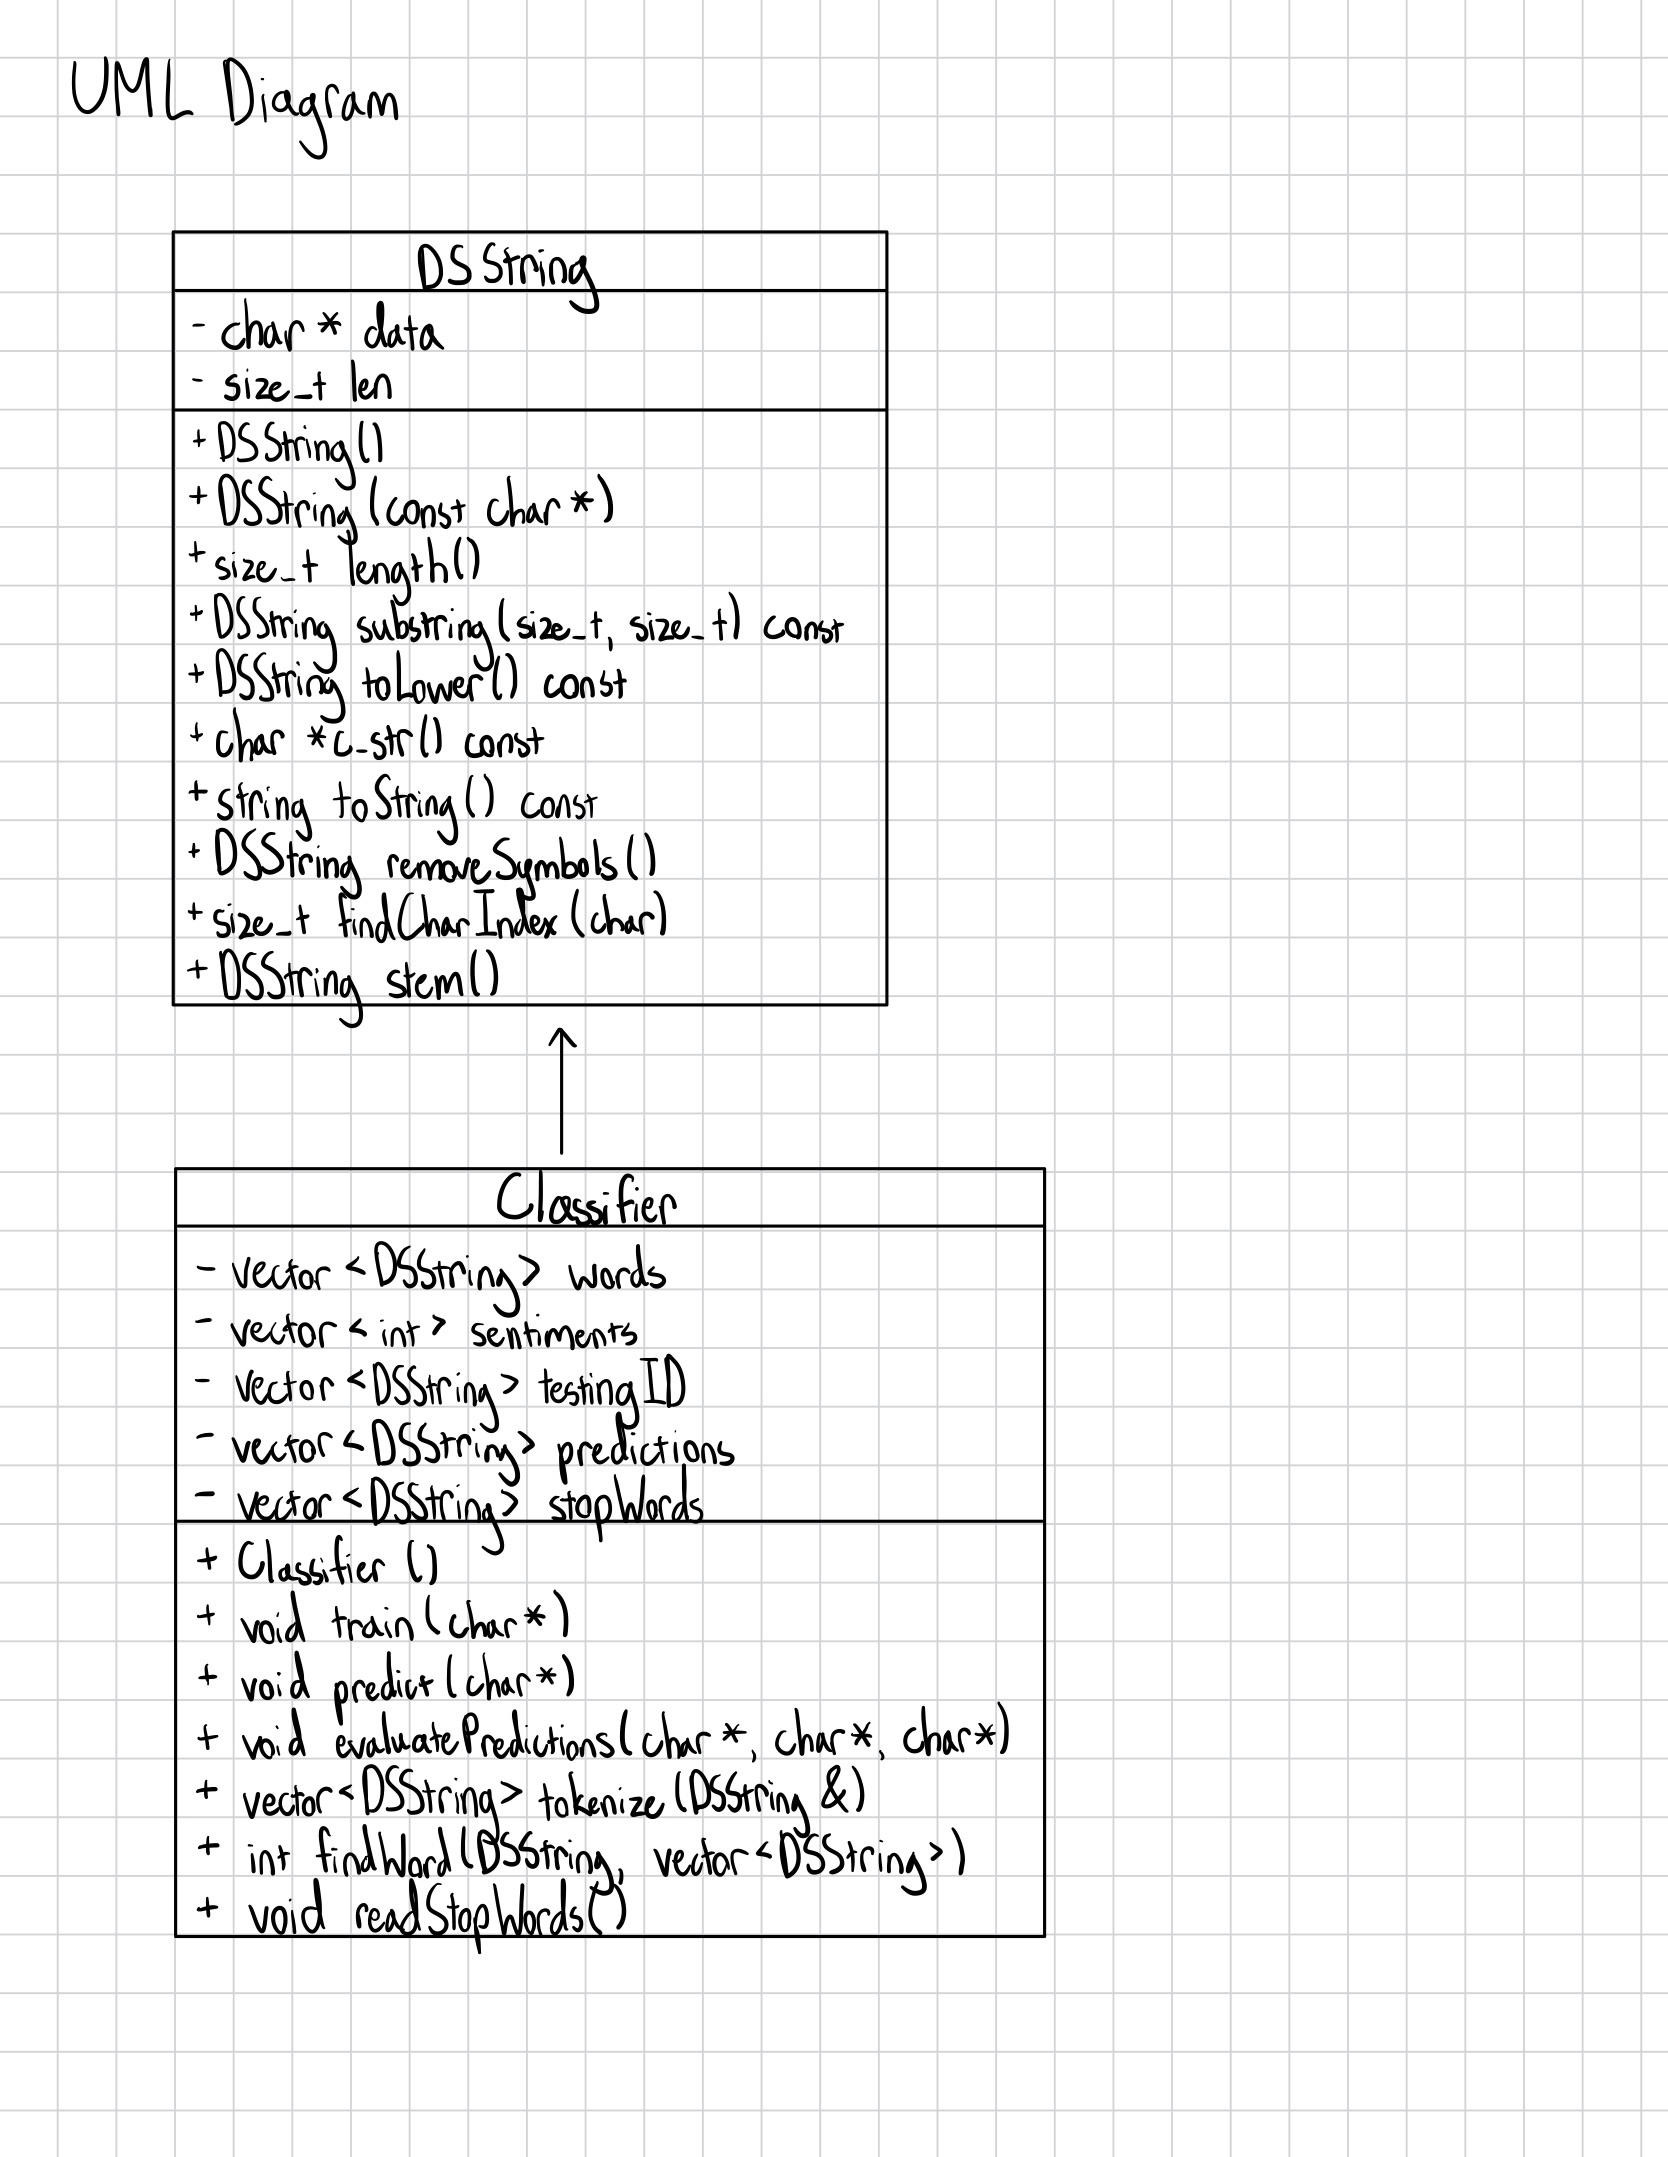 UML Diagram
DSString
- char * data
- size_t len
+ DSString()
+ DSString(const char *)
+ size_t length()
+ DSString substring(size_t, size_t) const
+ DSString toLower() const
+ char *c_str() const
+ string toString() const
+ DSString removeSymbols()
+ size_t findCharIndex(char)
+ DSString stem()
Classifier
- vector<DSString> words
- vector<int> sentiments
- vector<DSString> testingID
- vector<DSString> predictions
- vector<DSString> stopWords
+ Classifier ()
+ void train(char*)
+ void predict(char*)
+ void evaluatePredictions(char*, char*, char*)
+ vector<DSString> tokenize(DSString &)
+ int findWord(DSString, vector<DSString>)
+ void readStopWords()